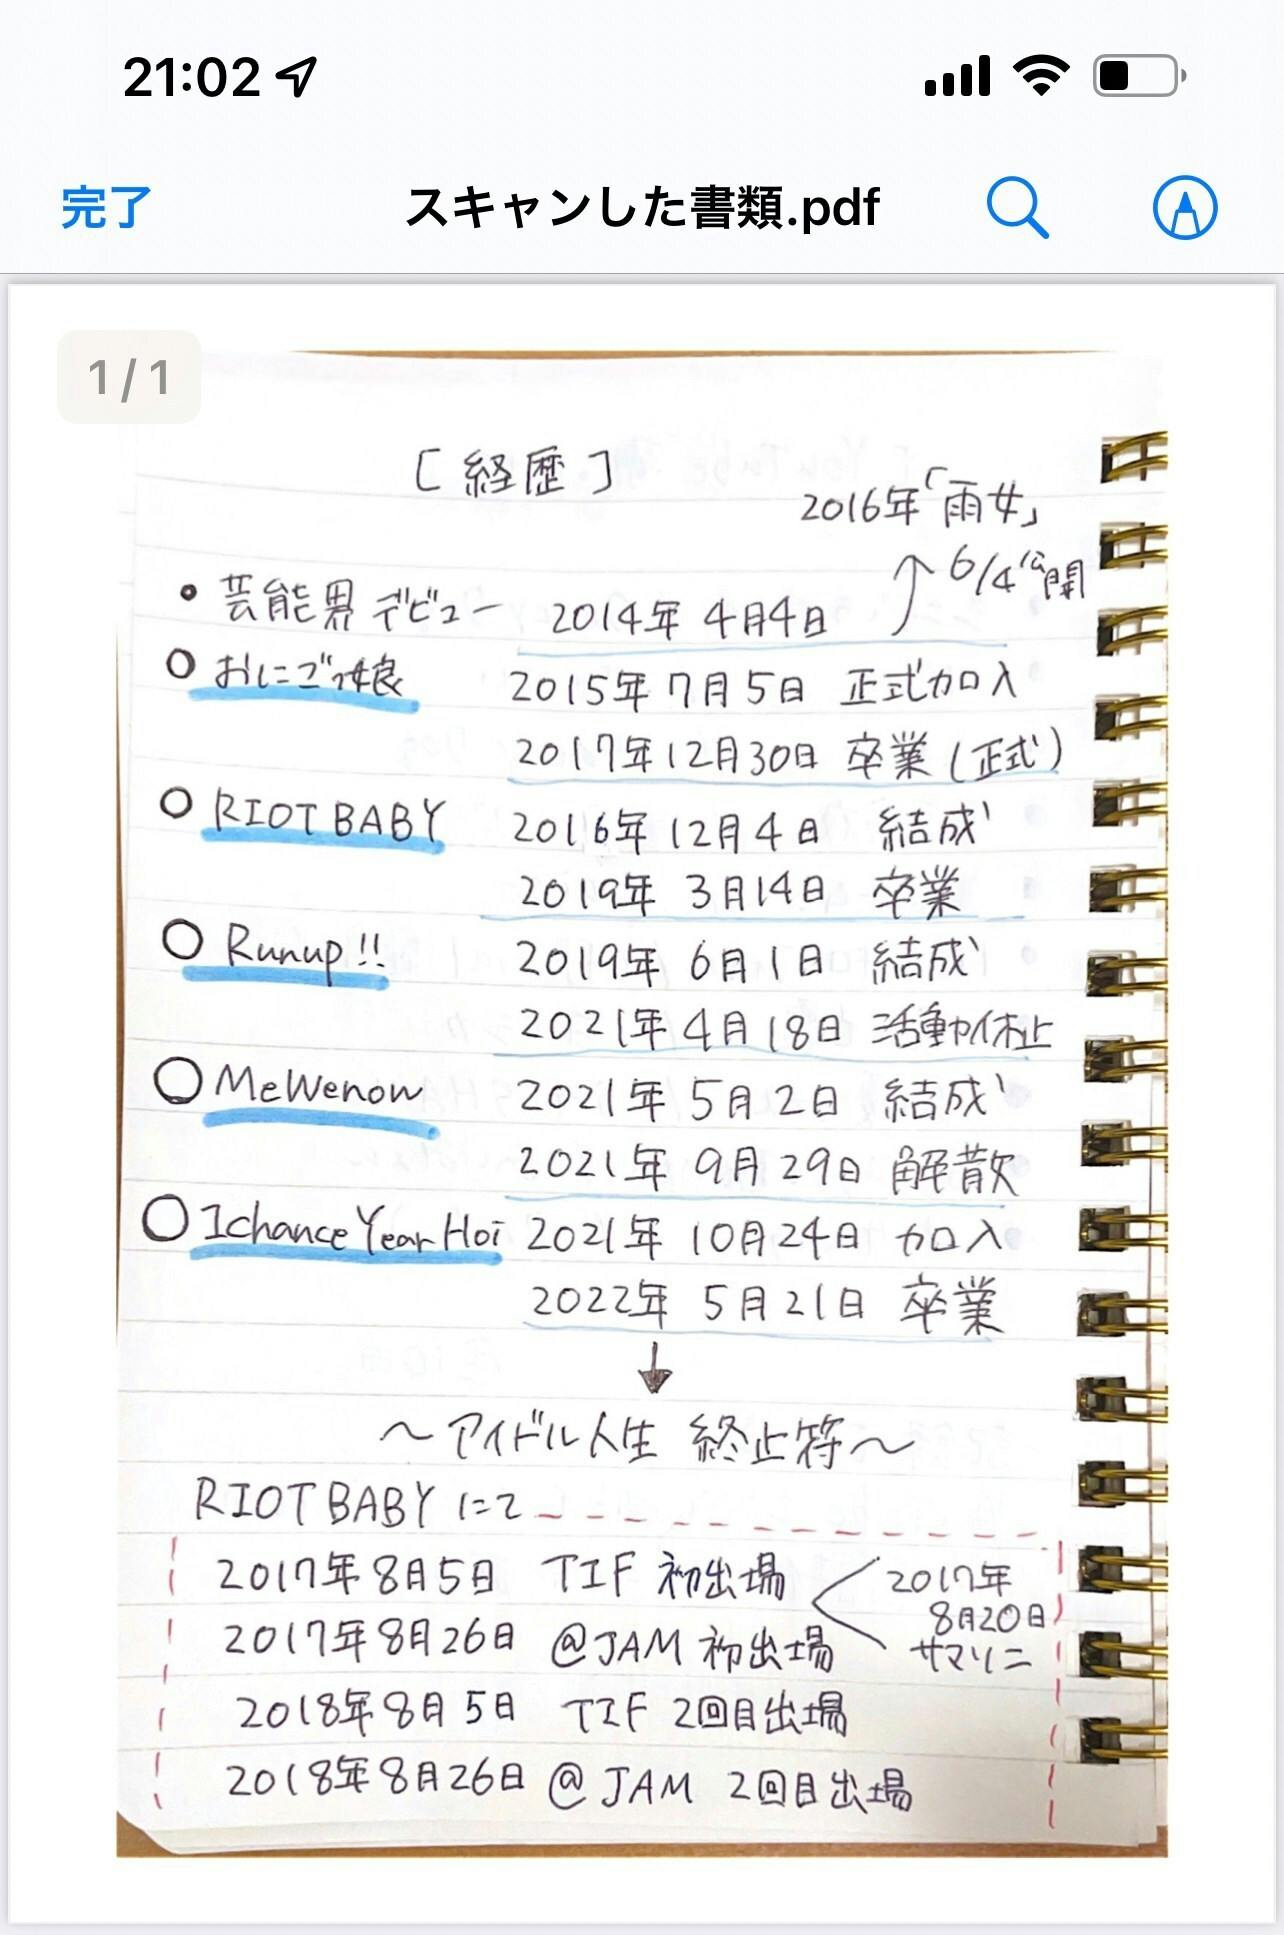 21:02
完了
スキャンした書類.pdf
1/1
[経歴]
2016年「雨女」
6/4公開
• 芸能界デビュー 2014年 4月4日
○ おにごっ娘 2015年 7月5日 正式加入
2017年12月30日 卒業(正式)
○ RIOT BABY 2016年 12月4日 結成
2019年 3月14日 卒業
○ Runup!! 2019年 6月1日 結成
2021年 4月18日 活動休止
○ MeWenow 2021年 5月2日 結成
2021年 9月29日 解散
○ IchanceYearHoi 2021年 10月24日 加入
2022年 5月21日 卒業
↓
〜アイドル人生 終止符〜
RIOT BABYにて
2017年8月5日 TIF 初出場
2017年
8月20日
サマソニ
2017年8月26日 @JAM 初出場
2018年8月5日 TIF 2回目出場
2018年8月26日 @JAM 2回目出場